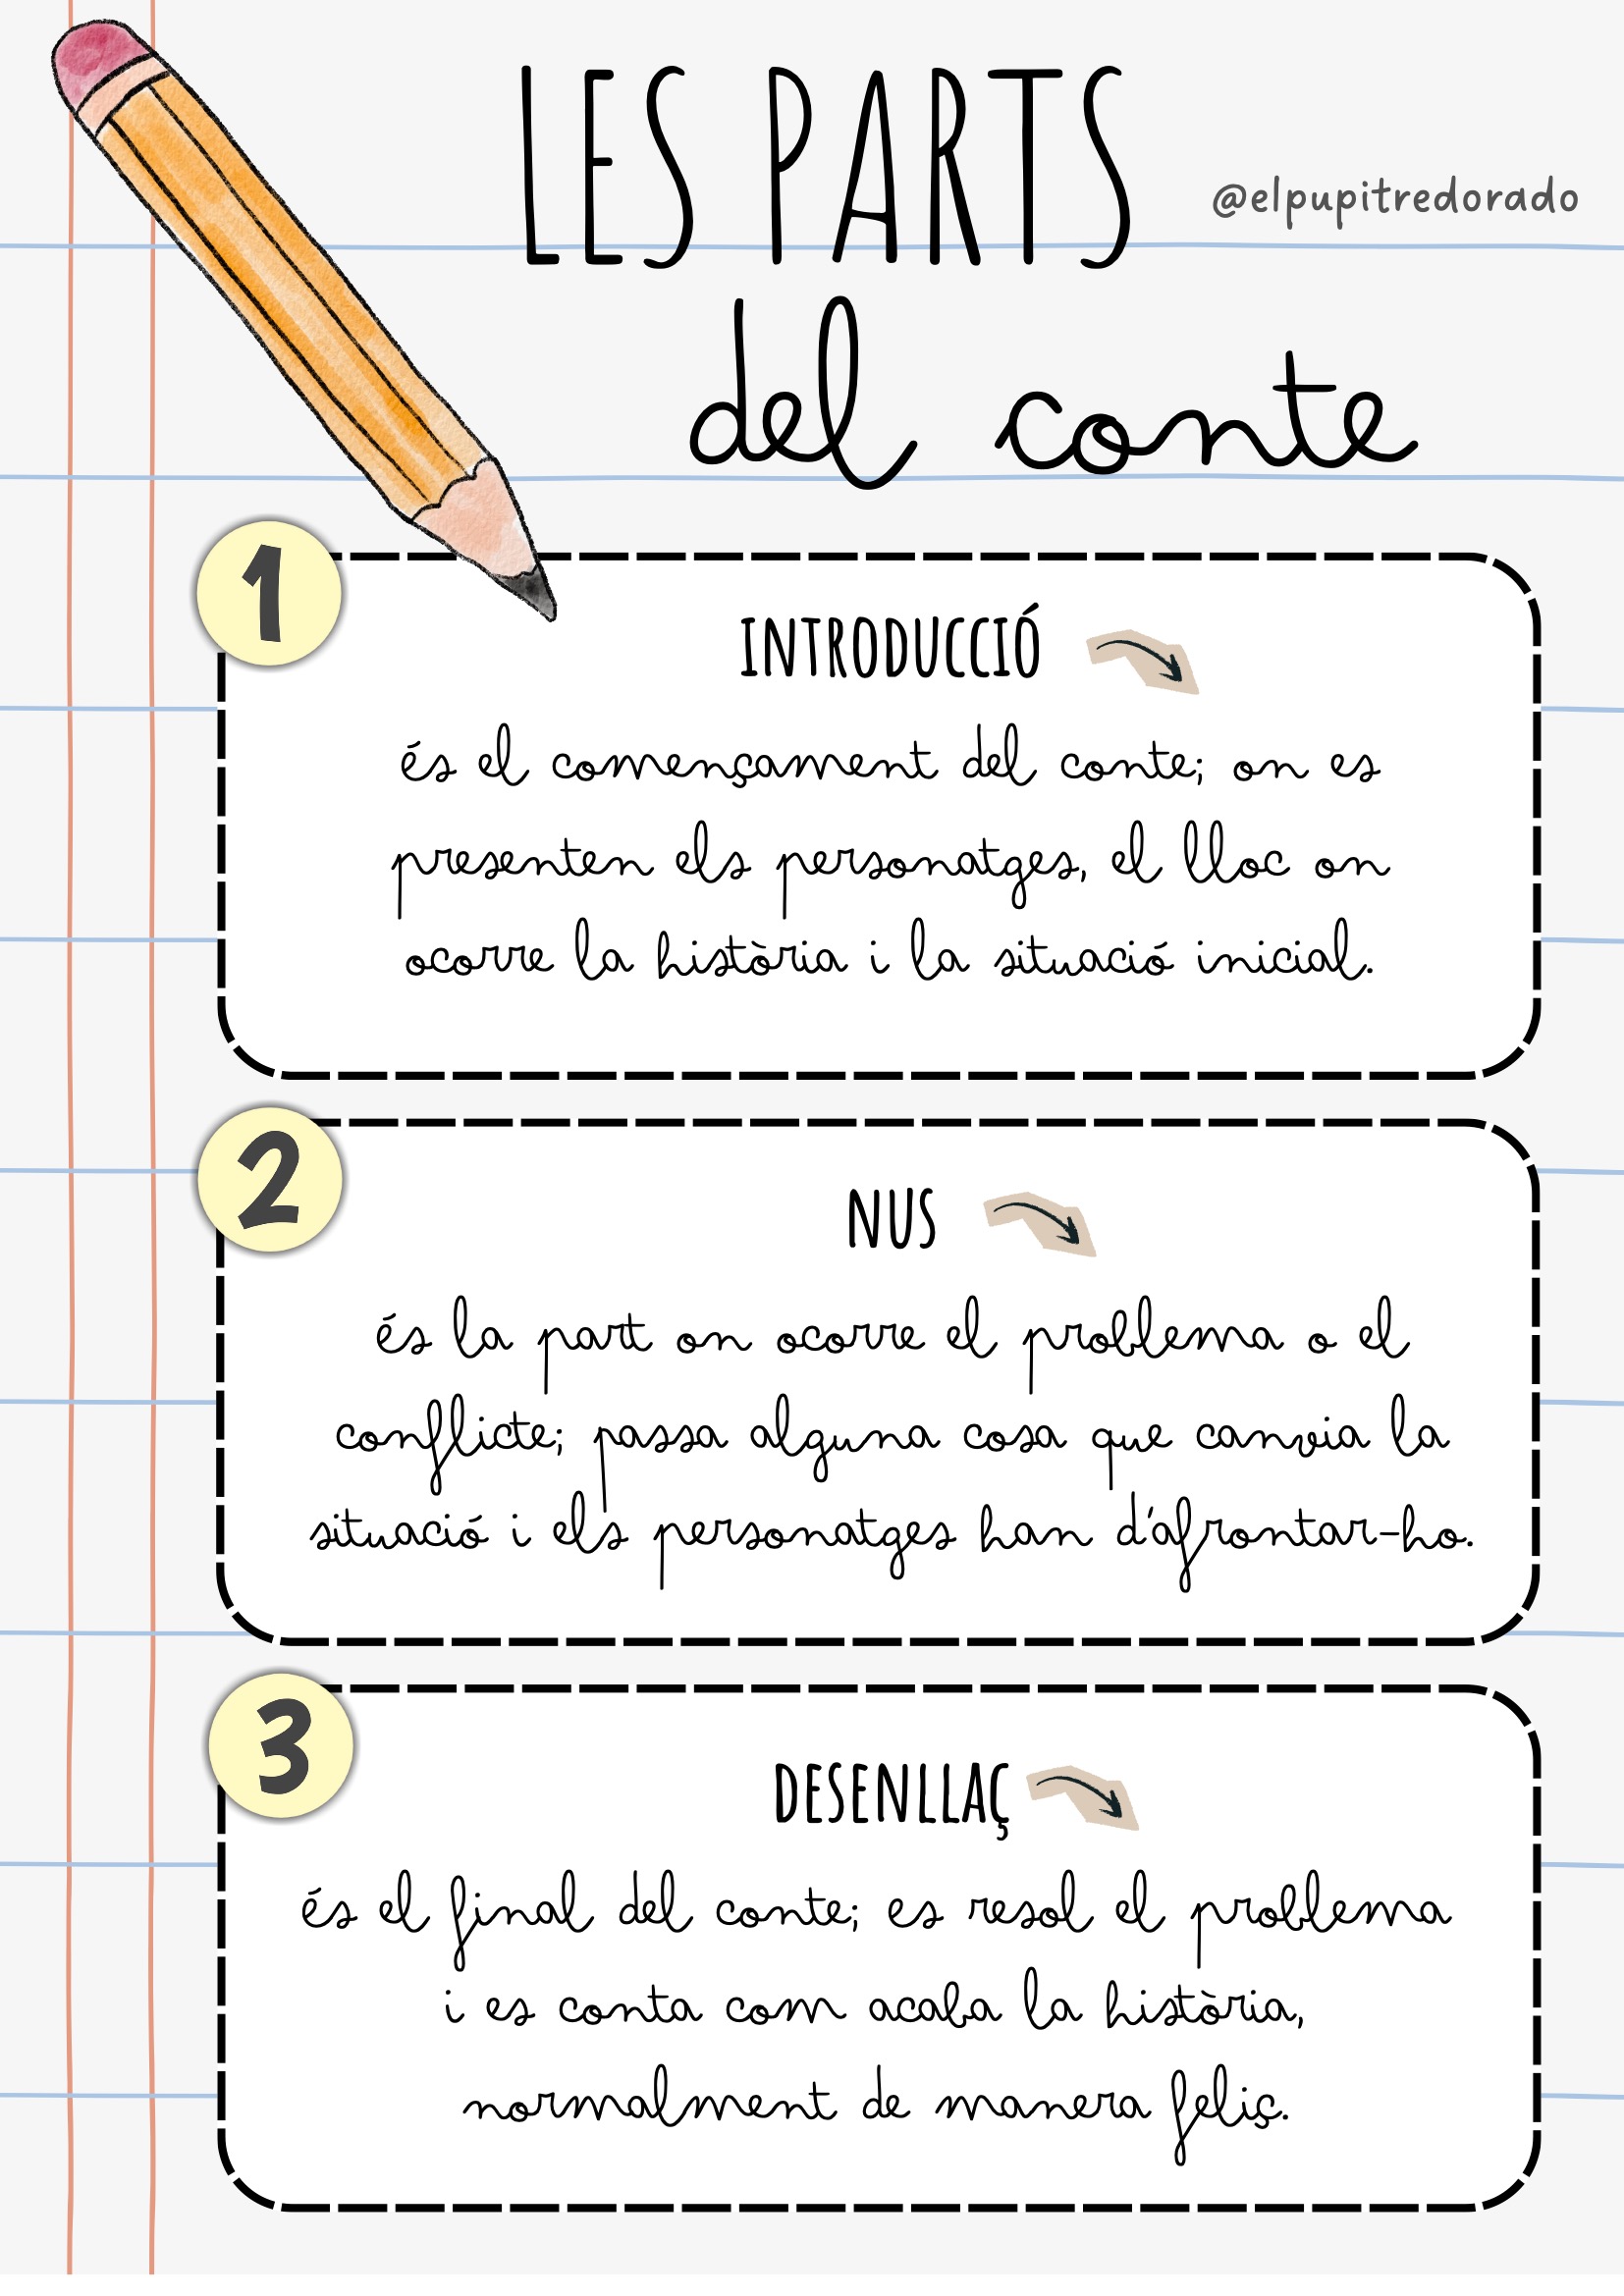 LES PARTS
@elpupitredorado
del conte
1
INTRODUCCIÓ
és el començament del conte; on es
presenten els personatges, el lloc on
ocorre la història i la situació inicial.
2
NUS
és la part on ocorre el problema o el
conflicte; passa alguna cosa que canvia la
situació i els personatges han d'afrontar-ho.
3
DESENLLAÇ
és el final del conte; es resol el problema
i es conta com acaba la història,
normalment de manera feliç.